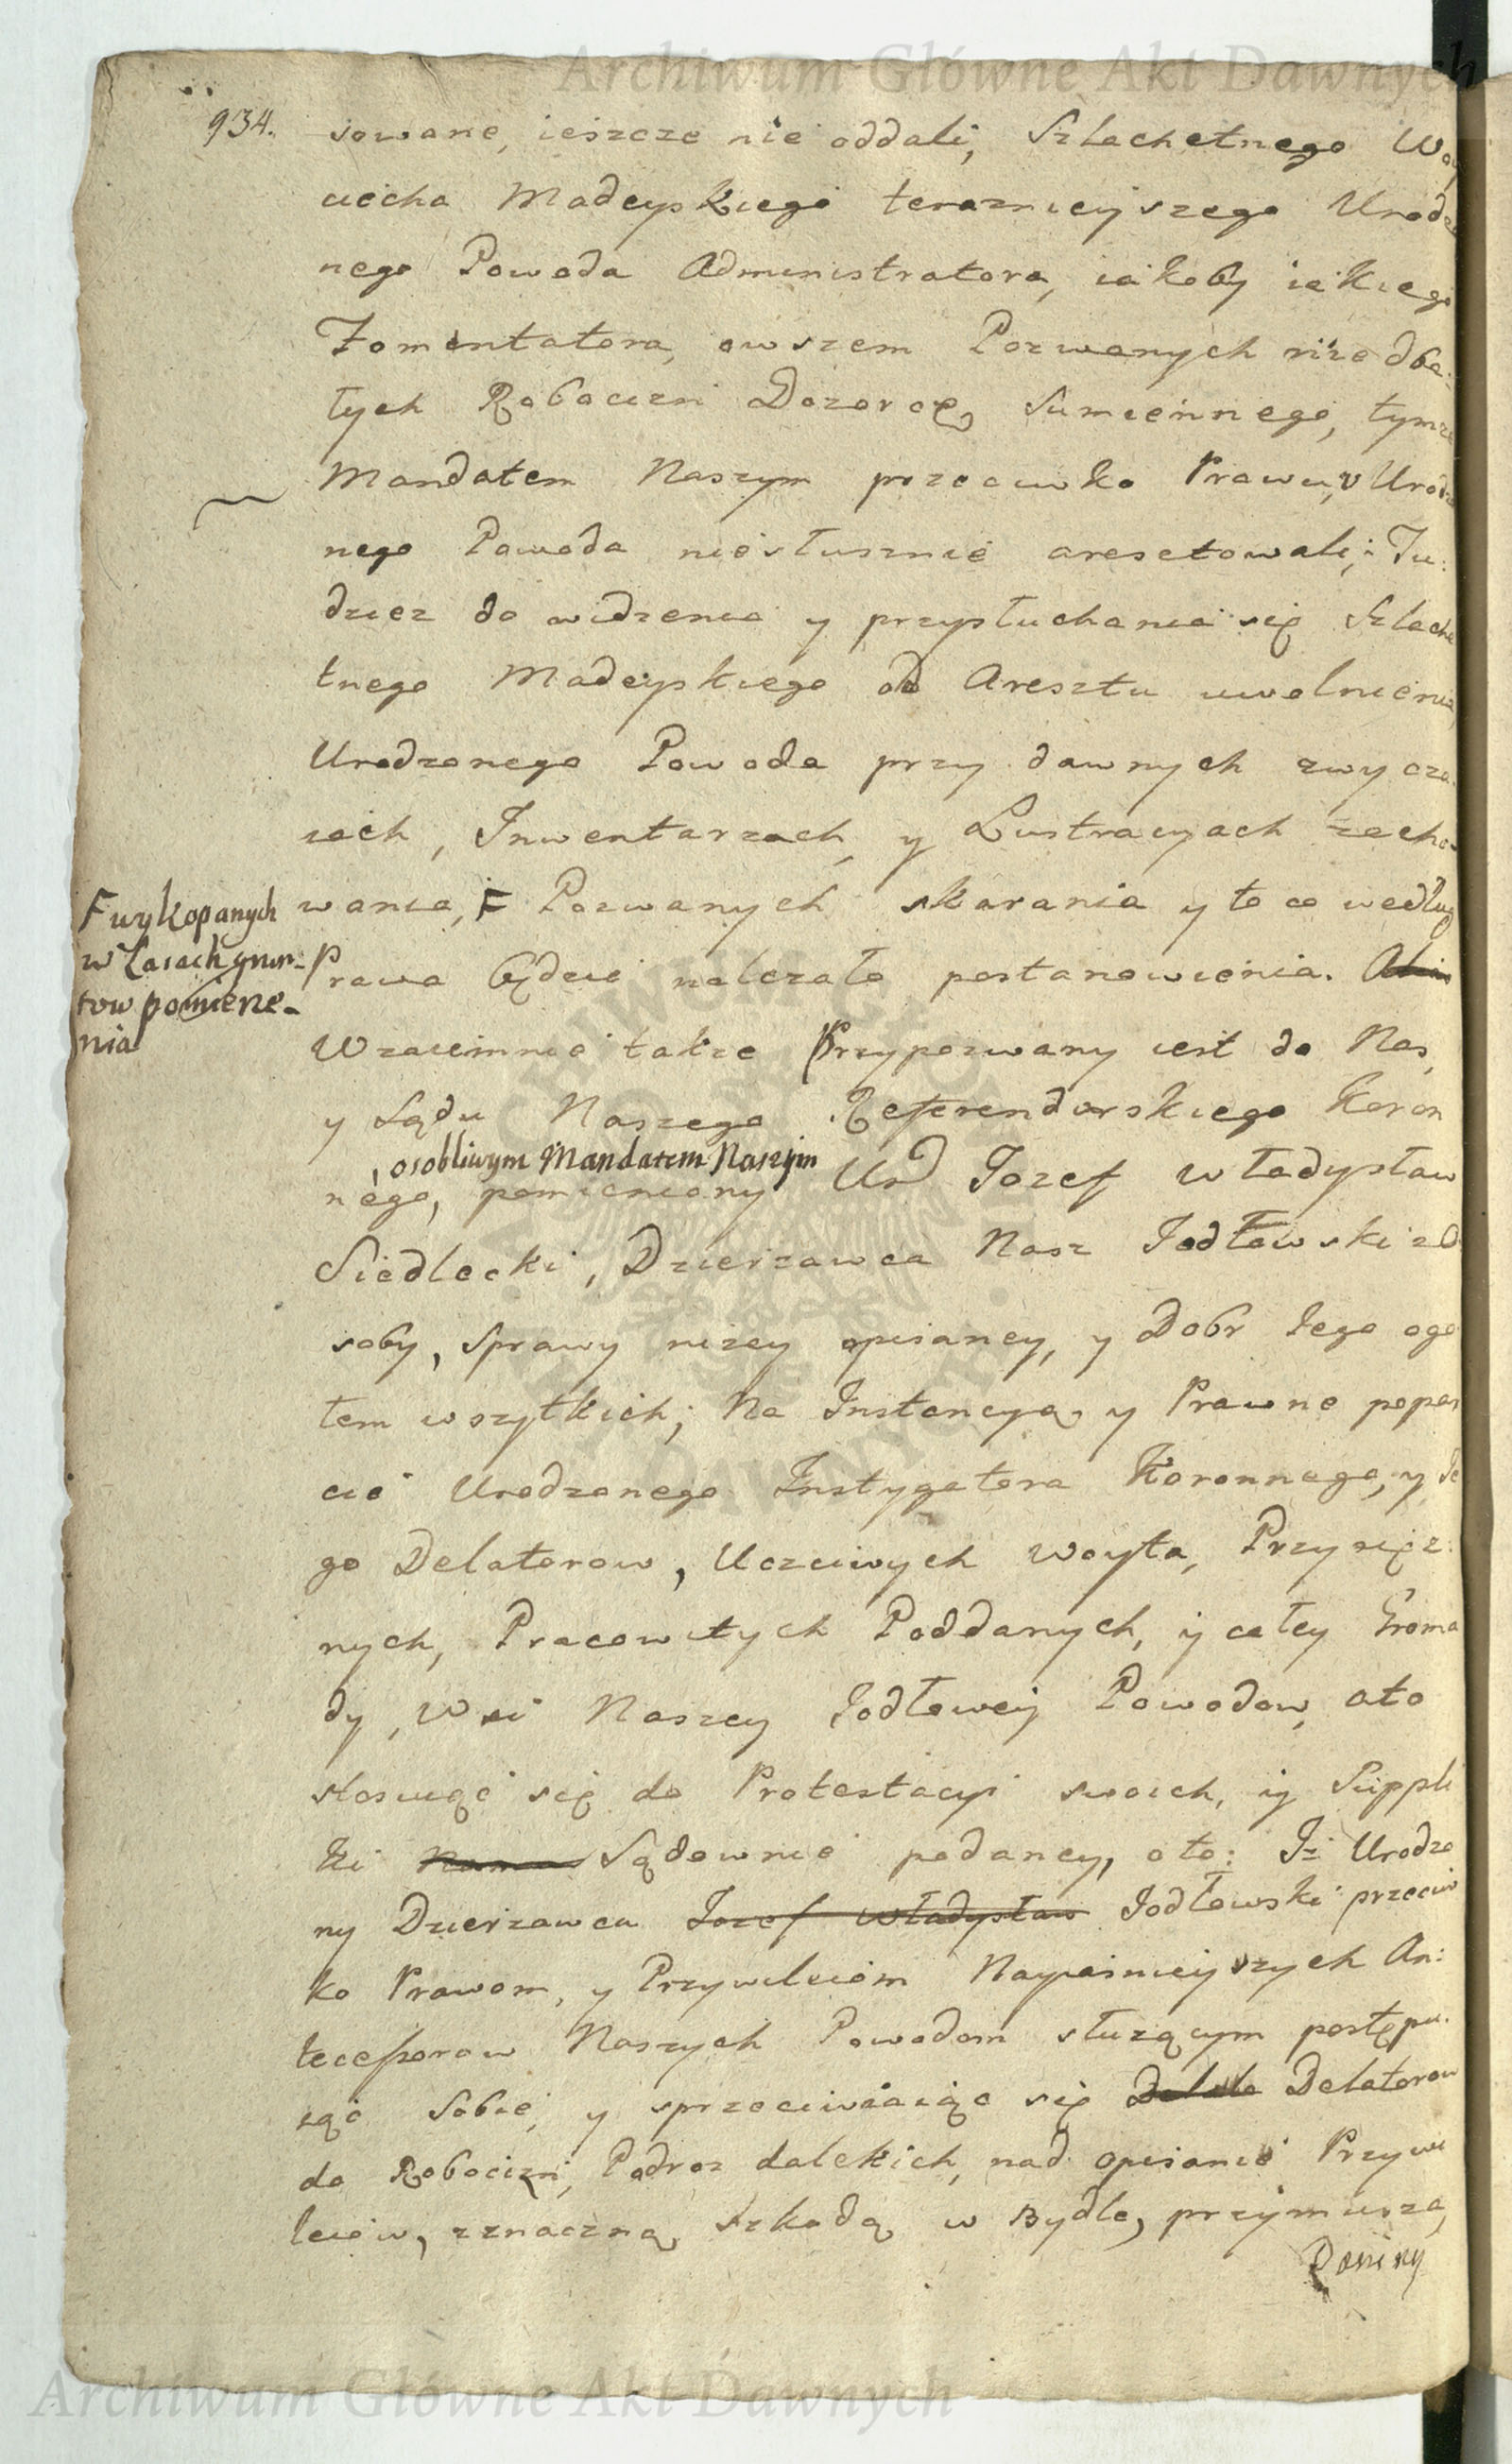 Archiwum Główne Akt Dawnych
934.
sowane, ieszcze nie oddali, Szlachetnego Woy
ciecha Madeyskiego teraznieyszego Urodzo
nego Powoda Administratora, iakoby iakiego
Fomentatora, owszem Pozwanych niedba:
łych Robocizn Dozorcę, sumiennego, tymże
Mandatem Naszym przeciwko Prawu, v Urodzo
nego Powoda niesłusznie aresztowali; Tu:
dziez do widzenia y przysłuchania się Szlache
tnego Madeyskiego od Aresztu uwolnienia,
Urodzonego Powoda przy dawnych zwycza:
iach, Inwentarzach, y Lustracyach zacho:
wania, F Pozwanych skarania y to co według
F wykopanych
w Lasach grun-
tow pomierze-
nia
Prawa będzie należało postanowienia.
Wzaiemnie także Przypozwany iest do Nas,
y Sądu Naszego Referendarskiego Koron
, osobliwym Mandatem Naszym
nego, pomieniony Ur Jozef Władysław
Siedlecki, Dzierzawca Nasz Jodłowski z O
soby, sprawy niżey opisaney, y Dobr Jego ogo
łem wszytkich; Na Instancyą, y Prawne popar
cie Urodzonego Instygatora Koronnego, y Je
go Delatorow, Uczciwych Woyta, Przysięż:
nych, Pracowitych Poddanych, y całey Groma
dy, Wsi Naszey Jodłowey Powodow, oto
stosuiąc się do Protestacyi swoich, iy Suppli
ki Sądownie podaney, oto: Iż Urodzo
ny Dzierzawca Jozef Władysław Jodłowski przeciw
ko Prawom, y Przywileiom Nayiasnieyszych An:
tecessorow Naszych Powodom służącym postępu:
iąc sobie, y sprzeciwiaiąc się Delato Delatorow
do Robocizn, Podroz dalekich, nad opisanie Przywi
leiow, z znaczną szkodą w Bydle, przymusza,
Daniny
Archiwum Główne Akt Dawnych